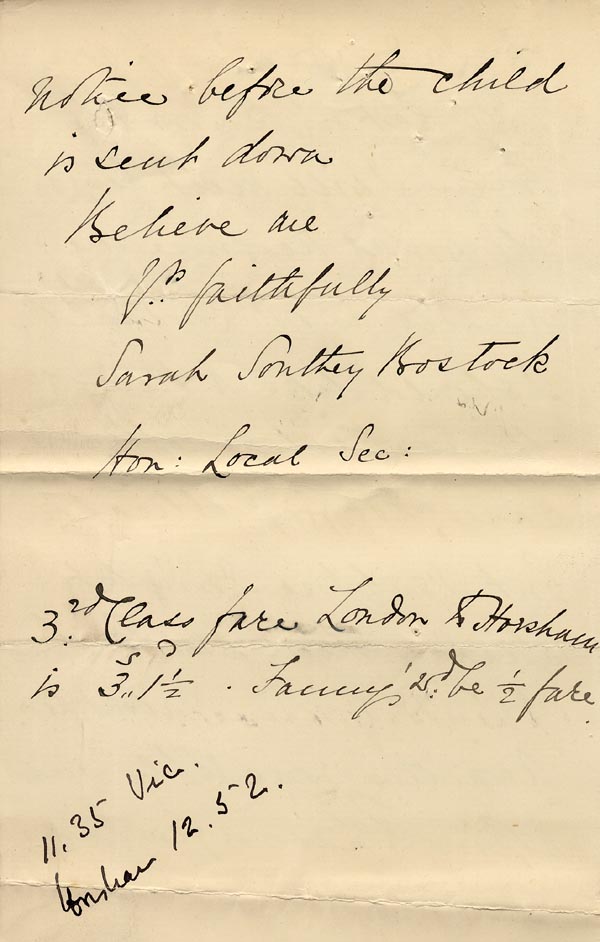 notice before the child
is sent down
Believe me
Yrs faithfully
Sarah Southey Bostock
Hon: Local Sec:
3rd Class fare London to Horsham
is 3s,,1½D. Fanny's wd. be ½ fare
11.35 Vic.
Horsham 12.52.